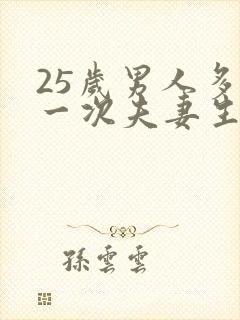 25歲男人多
一次夫妻生
孫雲雲